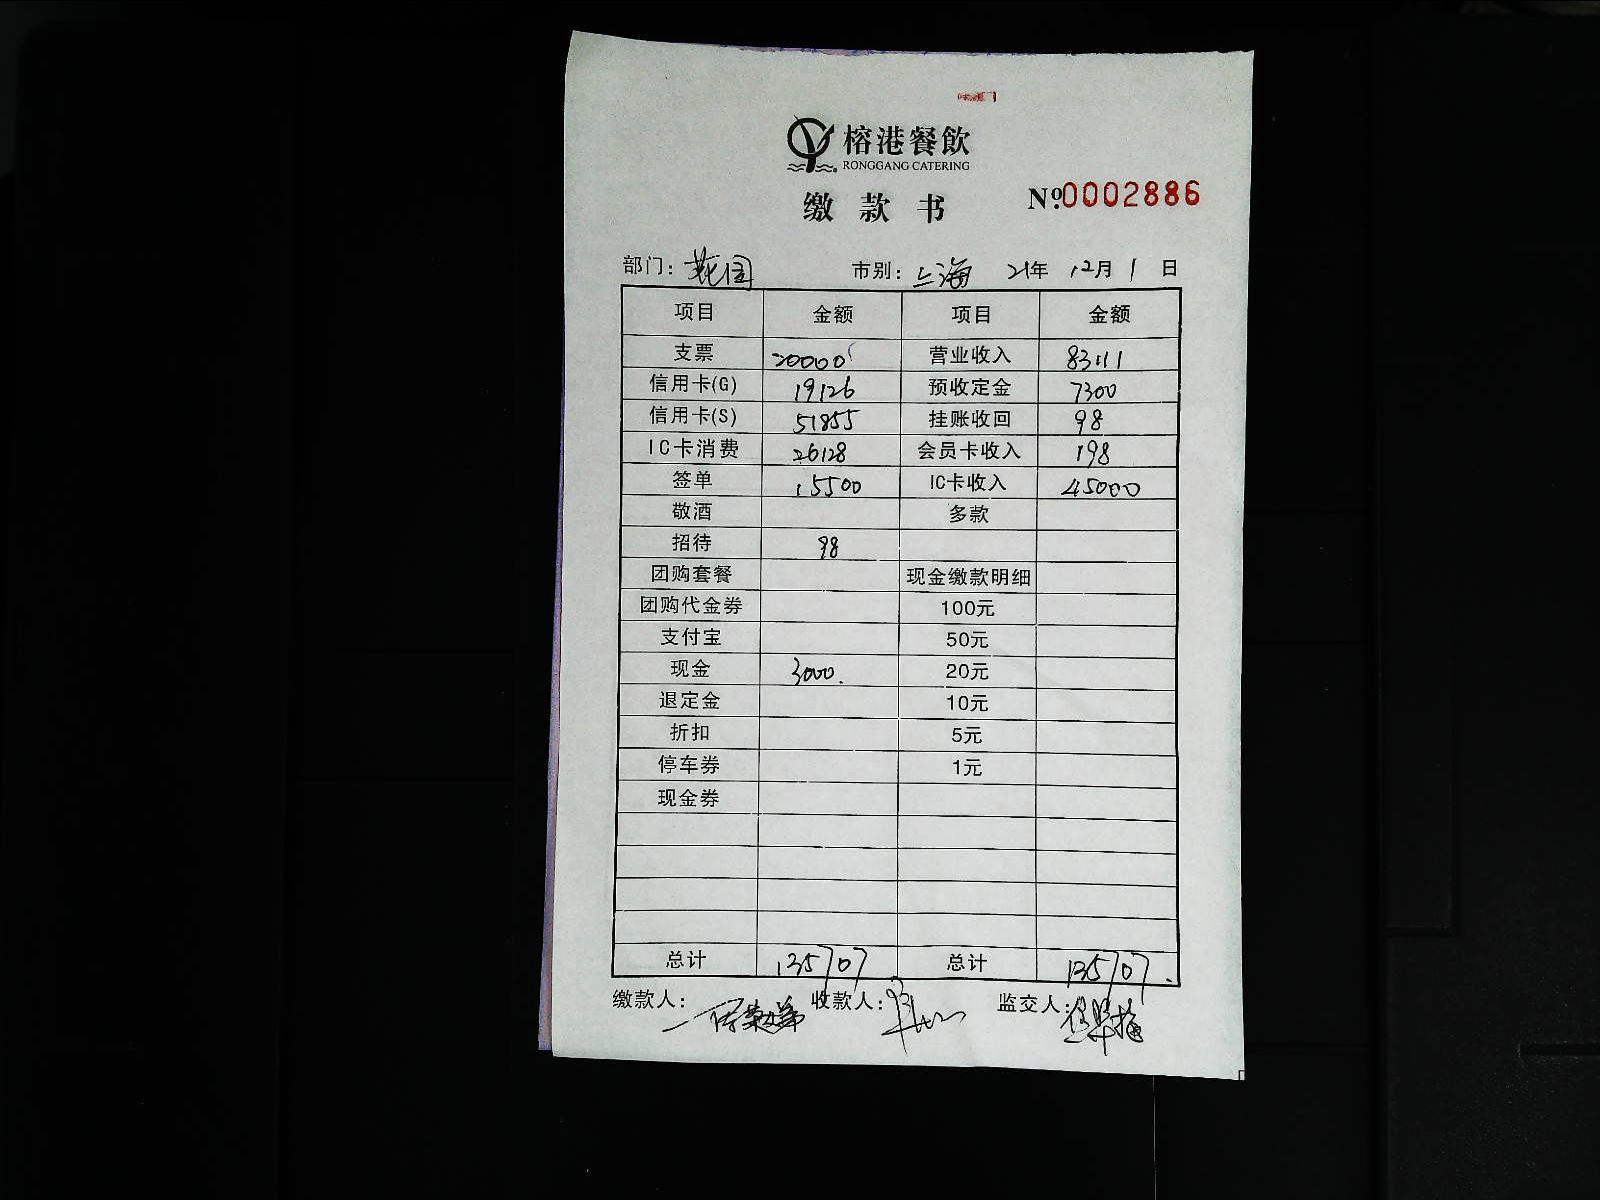 榕港餐飲
RONGGANG CATERING
缴款书 Nº.0002886
部门：花园 市别：上海 21年 12月 1 日
项目 金额 项目 金额
支票 20000 营业收入 83111
信用卡(G) 19126 预收定金 7300
信用卡(S) 51855 挂账收回 98
IC卡消费 26128 会员卡收入 198
签单 15500 IC卡收入 45000
敬酒 多款
招待 98
团购套餐 现金缴款明细
团购代金券 100元
支付宝 50元
现金 3000. 20元
退定金 10元
折扣 5元
停车券 1元
现金券
总计 135707 总计 135707.
缴款人： 收款人： 监交人：